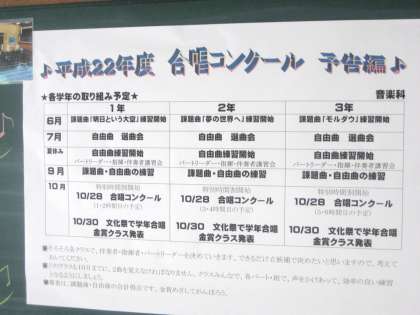 ♪平成22年度 合唱コンクール 予告編♪
★各学年の取り組み予定★ 音楽科
1年 2年 3年
6月 課題曲「明日という大空」練習開始 課題曲「夢の世界へ」練習開始 課題曲「モルダウ」練習開始
7月 自由曲 選曲会 自由曲 選曲会 自由曲 選曲会
夏休み 自由曲練習開始 自由曲練習開始 自由曲練習開始
パートリーダー・指揮・伴奏者講習会 パートリーダー・指揮・伴奏者講習会 パートリーダー・指揮・伴奏者講習会
9月 課題曲・自由曲の練習 課題曲・自由曲の練習 課題曲・自由曲の練習
10月 特別時間割開始 特別時間割開始 特別時間割開始
10/28 合唱コンクール 10/28 合唱コンクール 10/28 合唱コンクール
(1・2時間目の予定) (3・4時間目の予定) (5・6時間目の予定)
10/30 文化祭で学年合唱 10/30 文化祭で学年合唱 10/30 文化祭で学年合唱
金賞クラス発表 金賞クラス発表 金賞クラス発表
■そろそろ各クラスで、伴奏者・指揮者・パートリーダーを決めていきます。できるだけ立候補で決めたいと思いますので、考えて
おいてください。
2曲を覚えなければなりません。クラスみんなで、各パート・班で、声をかけあって、効率の良い練習
となるようにしましょう。
■審査は、課題曲・自由曲の合計得点です。金賞めざしてがんばろう。